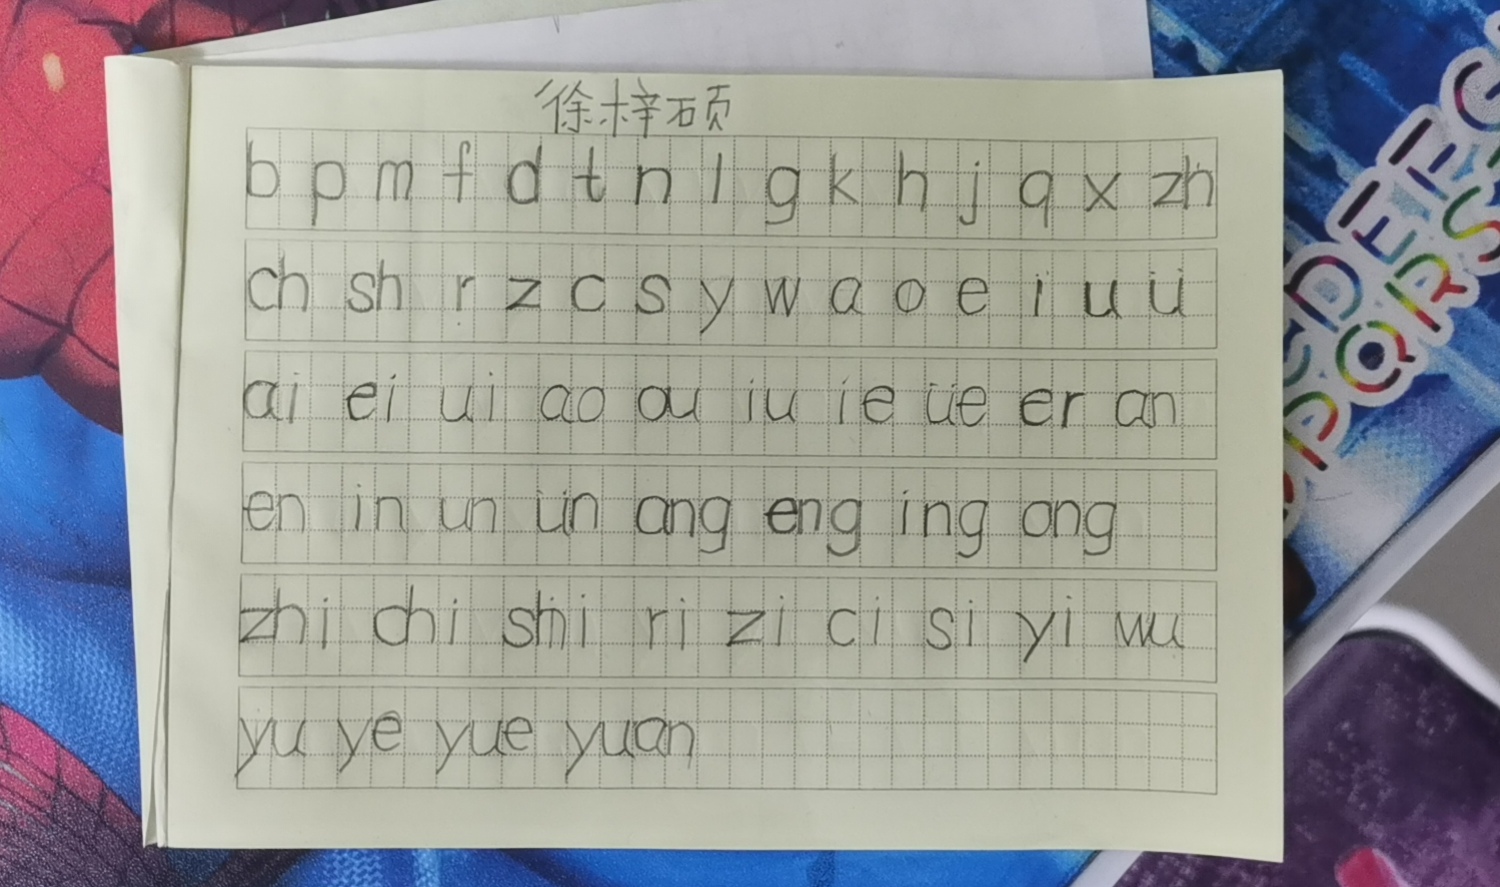 徐梓硕
b p m f d t n l g k h j q x zh
ch sh r z c s y w a o e i u ü
ai ei ui ao ou iu ie üe er an
en in un ün ang eng ing ong
zhi chi shi ri zi ci si yi wu
yu ye yue yuan